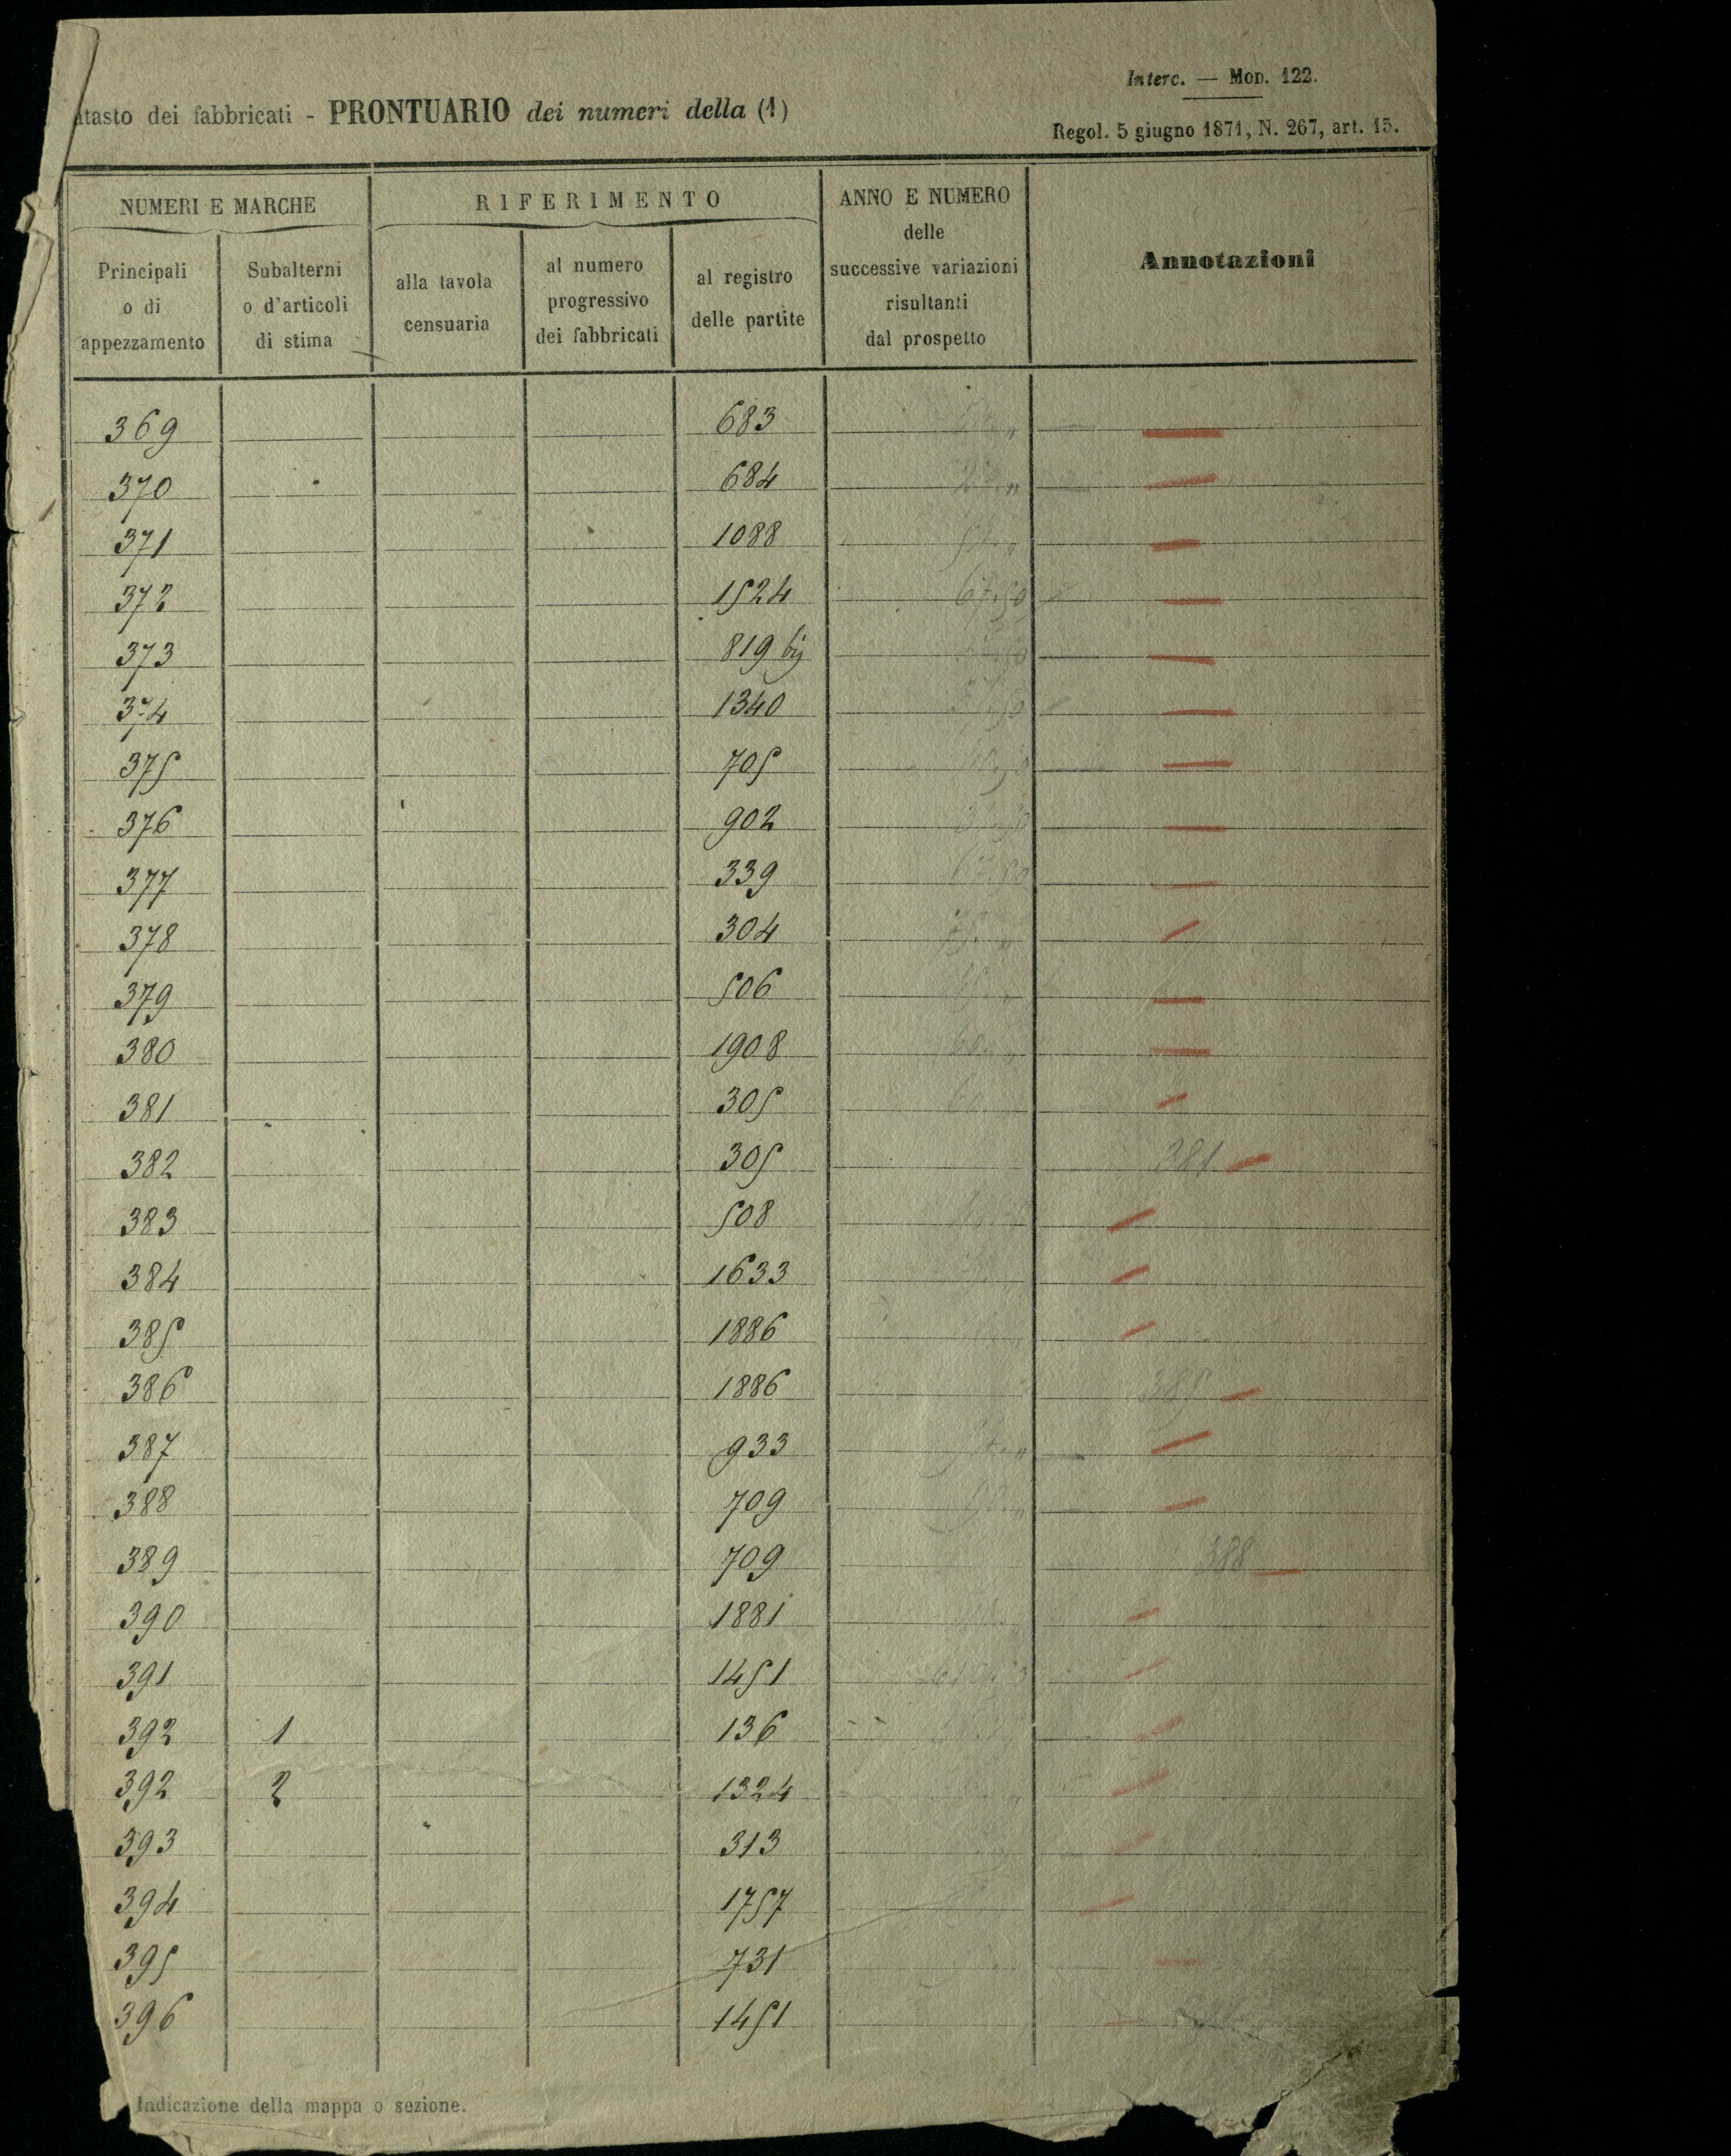 Interc. — Mod. 122.
atasto dei fabbricati - PRONTUARIO dei numeri della (1)
Regol. 5 giugno 1871, N. 267, art. 15.
NUMERI E MARCHE
RIFERIMENTO
ANNO E NUMERO
delle
successive variazioni
risultanti
dal prospetto
Annotazioni
Principali
o di
appezzamento
Subalterni
o d'articoli
di stima
alla tavola
censuaria
al numero
progressivo
dei fabbricati
al registro
delle partite
369 683
370 684
371 1088
372 1524 67.50
373 819 bis
374 1340
375 705
376 902
377 339 67.50
378 304 75. "
379 506
380 1908 60. "
381 305 60.
382 305 381
383 508
384 1633
385 1886
386 1886 385
387 933
388 709
389 709 388
390 1881
391 1451
392 1 136
392 2 1324
393 313
394 1757
395 731
396 1451
Indicazione della mappa o sezione.